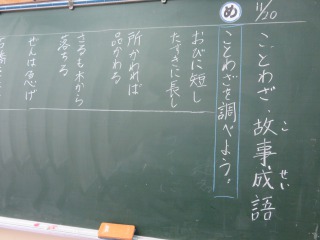 11/20
ことわざ・故事成語
こ せい
め
ことわざを調べよう。
おびに短し
たすきに長し
所かわれば
品かわる
さるも木から
落ちる
せんは急げ